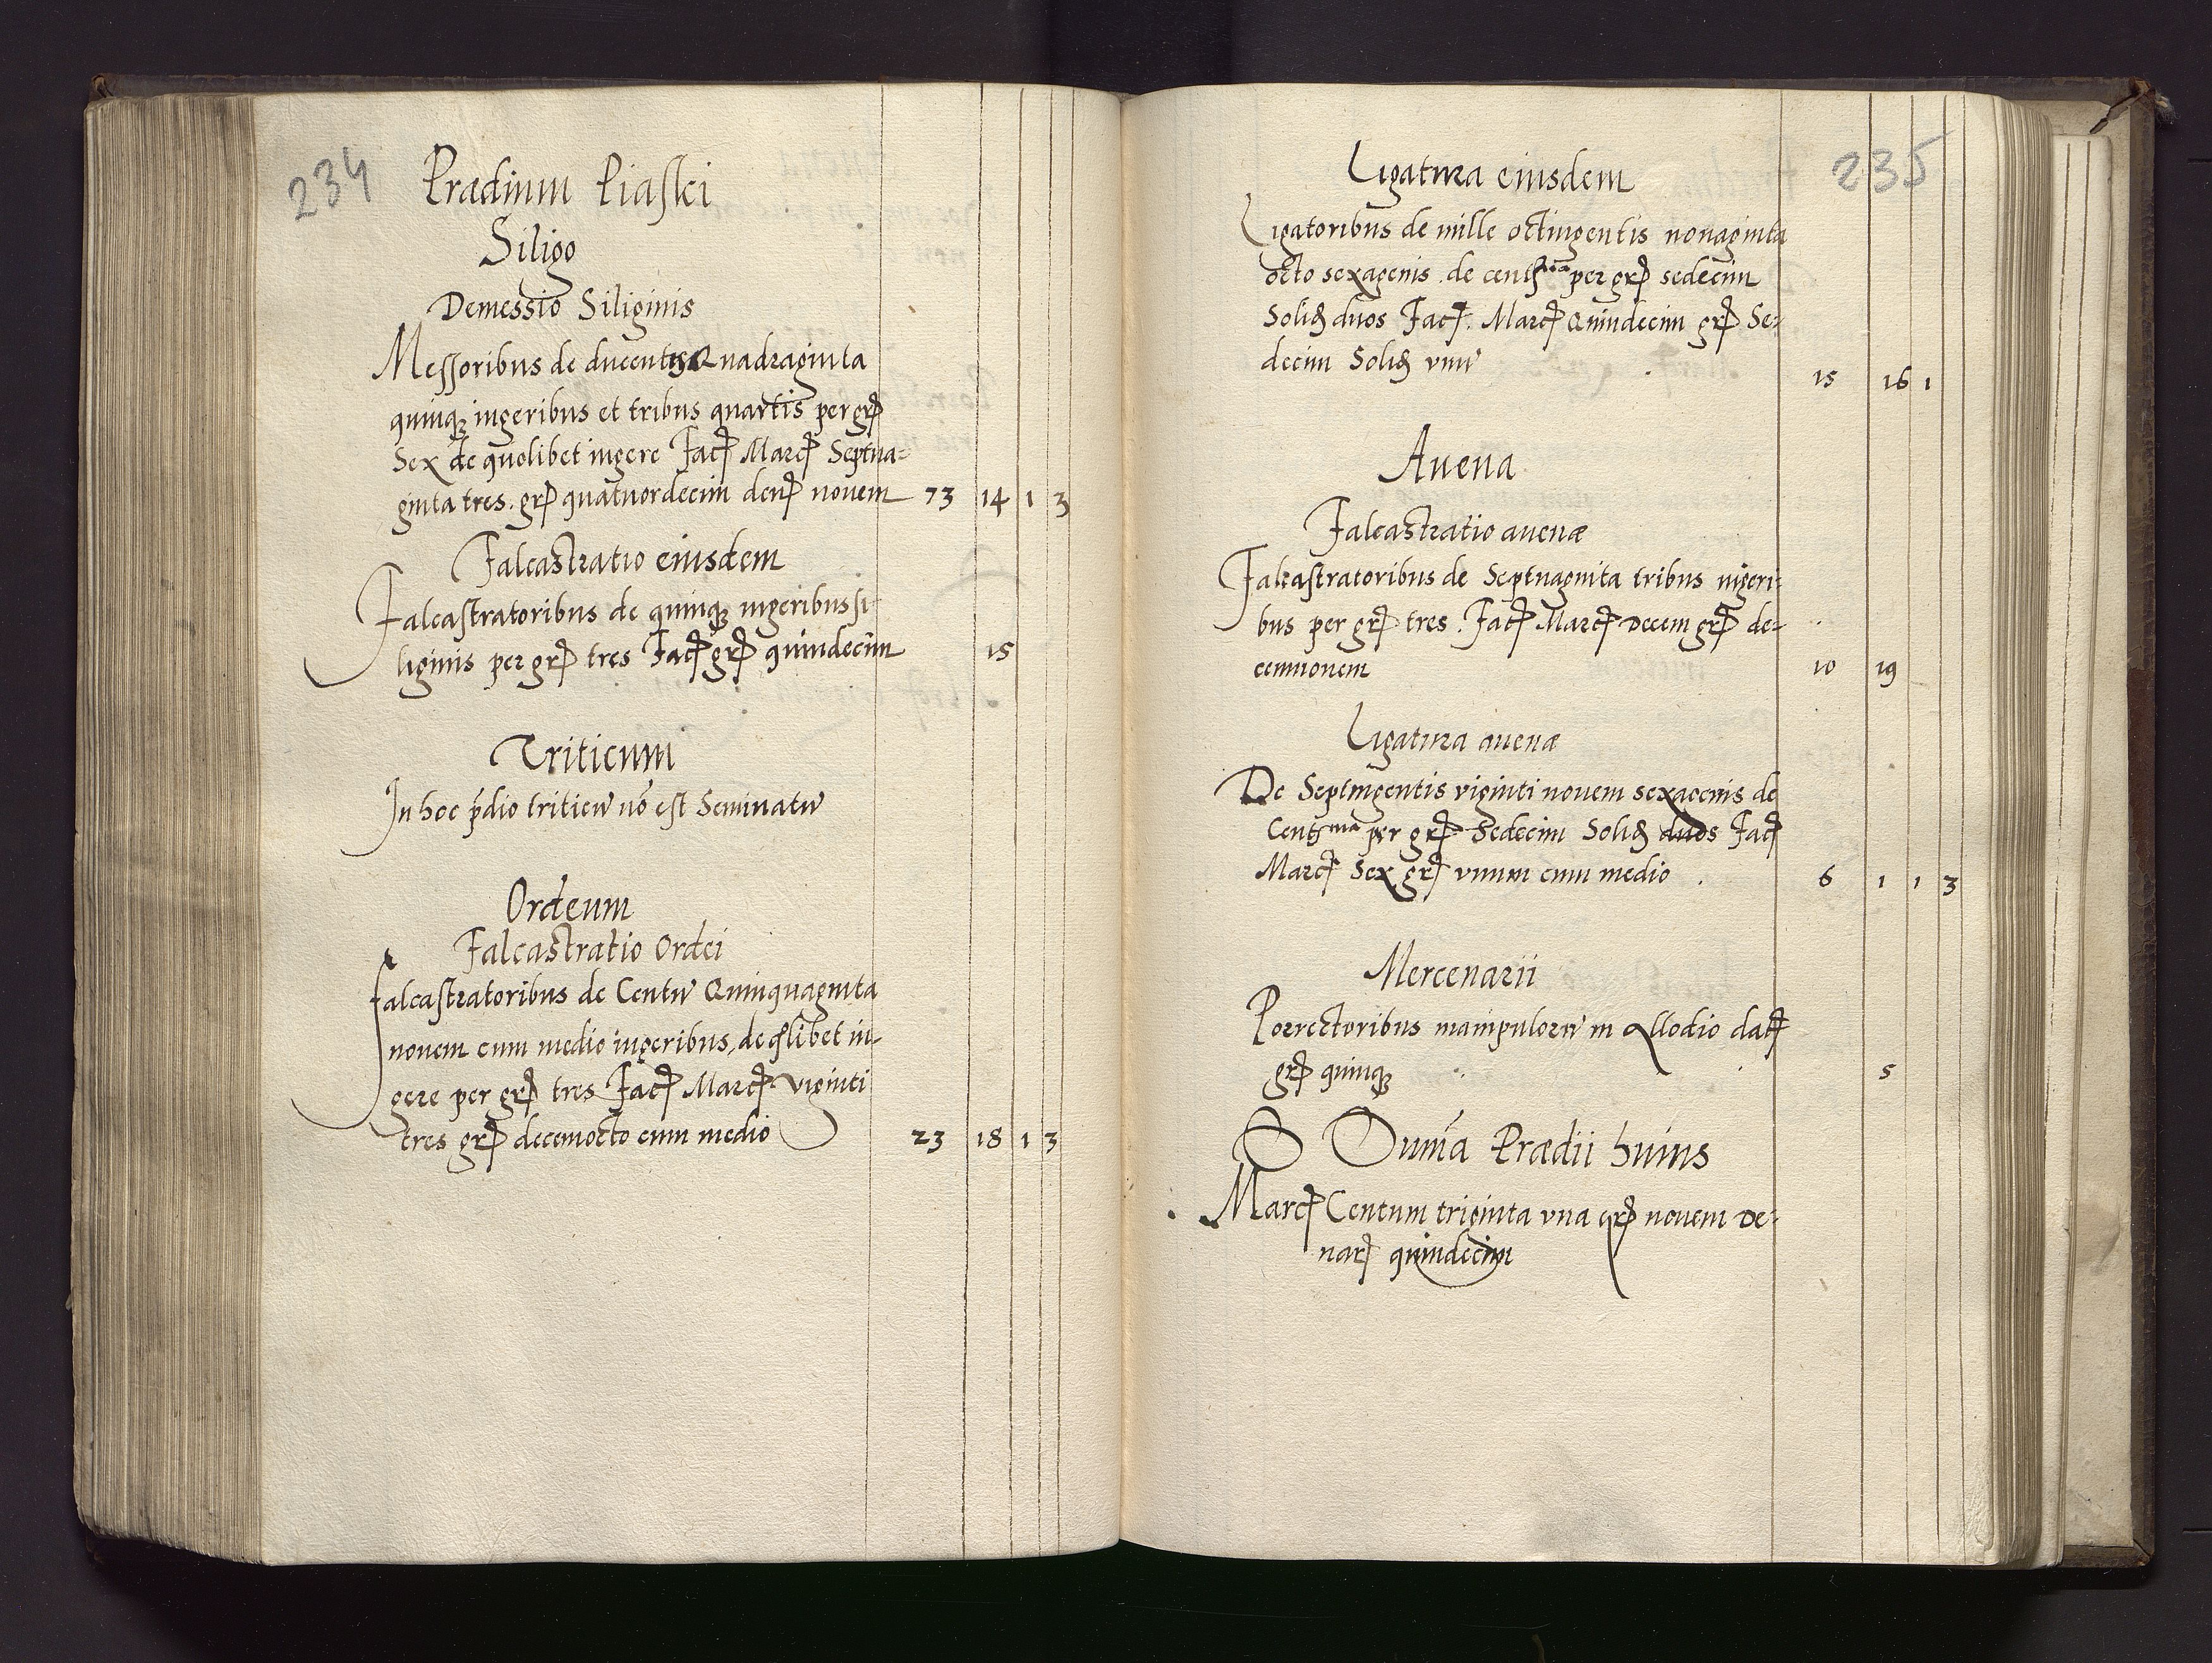 234
Prædium Piaski
Siligo
Demessio Siliginis
Messoribus de ducentis Quadraginta
quinq; iugeribus et tribus quartis per gr
Sex de quolibet iugere Fac Marc Septua-
ginta tres. gr quatuordecim den novem 73 14 1 3
Falcastratio eiusdem
Falcastratoribus de quinq; iugeribus si-
liginis per gr tres Fac gr quindecim 15
Triticum
In hoc pdio triticū nō est Seminatū
Ordeum
Falcastratio Ordei
Falcastratoribus de Centū Quinquaginta
novem cum medio iugeribus, de qlibet iu-
gere per gr tres Fac Marc viginti
tres gr decemocto cum medio 23 18 1 3
235
Ligatura eiusdem
Ligatoribus de mille octingentis nonaginta
octo sexagenis. de per gr sedecim
Solid duos Fac. Marc Quindecim gr Se-
decim Solid vnū 15 16 1
Auena
Falcastratio auenæ
Falcastratoribus de Septuaginta tribus iugeri-
bus per gr tres. Fac Marc Decem gr de-
cemnouem 10 19
Ligatura auenæ
De Septingentis viginti nouem sexagenis de
per gr Sedecim Solid duos Fac
Marc Sex gr vnum cum medio 6 1 1 3
Mercenarii
Porrectoribus manipulorū in allodio dat
gr quinq; 5
Sum̄a Prædii huius
Marc Centum triginta vna gr novem De-
nar quindecim